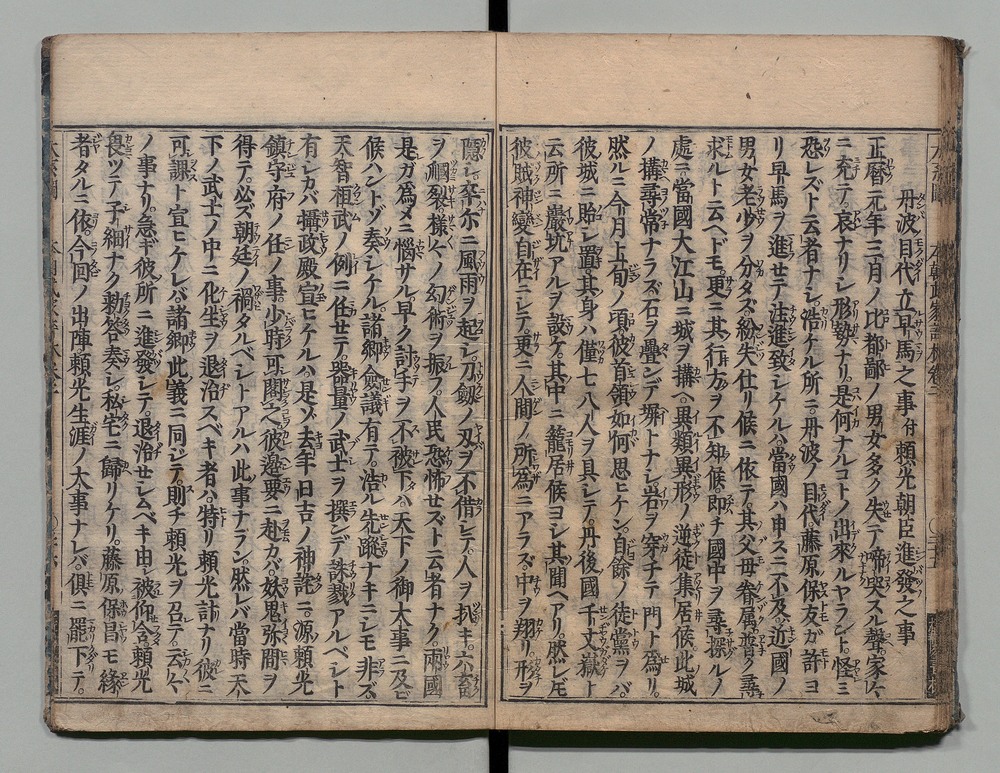 丹波目代立早馬之事付頼光朝臣進發之事
正暦元年三月ノ比都鄙ノ男女多ク失テ啼哭スル聲家々
ニ充テ哀ナリシ形勢ナリ是何ナルコトノ出來ルヤラント怪ミ
恐レズト云者ナシ浩ケル所ニ丹波ノ目代藤原保友ガ許ヨ
リ早馬ヲ進セテ注進致シケルハ當國ハ申スニ不及近國ノ
男女老少ヲ分タズ紛失仕リ候ニ依テ其父母眷属普ク尋
求ルト云ヘドモ更ニ其行方ヲ不知候即チ國中ヲ尋探ルノ
處ニ當國大江山ニ城ヲ搆ヘ異類異形ノ逆徒集居候此城
ノ搆尋常ナラズ石ヲ疊ンデ塀トナシ岩ヲ穿チテ門ト爲リ
然ルニ今月上旬ノ頃彼首領如何思ヒケン自餘ノ徒黨ヲバ
彼城ニ貽シ置其身ハ僅七八人ヲ具シテ丹後國千丈嶽ト
云所ニ巖坑アルヲ設ケ其中ニ籠居候ヨシ其聞ヘアリ然レ𪜈
彼賊神變自在ニシテ更ニ人間ノ所爲ニアラズ中ヲ翔リ形ヲ
隠シ卒尓ニ風雨ヲ起シ刀劔ノ刃ヲ不借シテ人ヲ
ヲ裂様々ノ幻術ヲ振フ人民恐怖セズト云者ナク兩國
是ガ爲メニ惱サル早ク討手ヲ不被下ハ天下ノ御大事ニ及ビ
候ハントゾ奏シケル諸卿僉議有テ浩ル先蹤ナキニシモ非ズ
天智桓武ノ例ニ任セテ器量ノ武士ヲ撰ンデ誅戮アルベシト
有シカバ攝政殿宣ヒケルハ是ゾ去年日吉ノ神詫ニ源頼光
鎮守府ノ任ノ事少時可閣之彼邉要ニ赴カバ妖鬼弥間ヲ
得テ必ズ朝廷ノ禍タルベシトアルハ此事ナラン然バ當時天
下ノ武士ノ中ニ化生ヲ退治スベキ者ハ特リ頼光計ナリ彼ニ
可課ト宣ヒケレバ諸卿此義ニ同ジテ則チ頼光ヲ召シテ云々
ノ事ナリ急ギ彼所ニ進發シテ退治セシムベキ由被仰含頼光
畏ツテ子細ナク勅答奏シ私宅ニ歸リケリ藤原保昌モ縁
者タルニ依今回ノ出陣頼光生涯ノ大事ナレバ倶ニ罷下テ